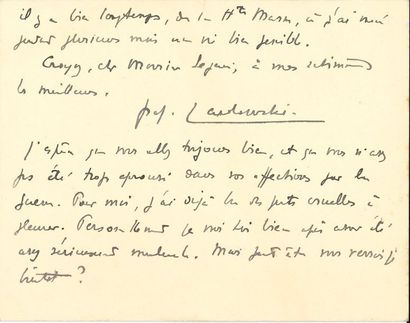 il y a bien longtemps, de la Hte Marne, où j'ai mené
pendant plusieurs mois une vie bien pénible.
Croyez, cher Monsieur, à mes sentiments
les meilleurs.
Landowski.
J'espère que vous allez toujours bien, et que vous n'avez
pas été trop éprouvé dans vos affections par la
guerre. Pour moi, j'ai déjà eu des pertes cruelles à
pleurer. Personnellement je vais très bien après avoir été
assez sérieusement malade. Mais peut-être vous verrai-je
bientôt ?